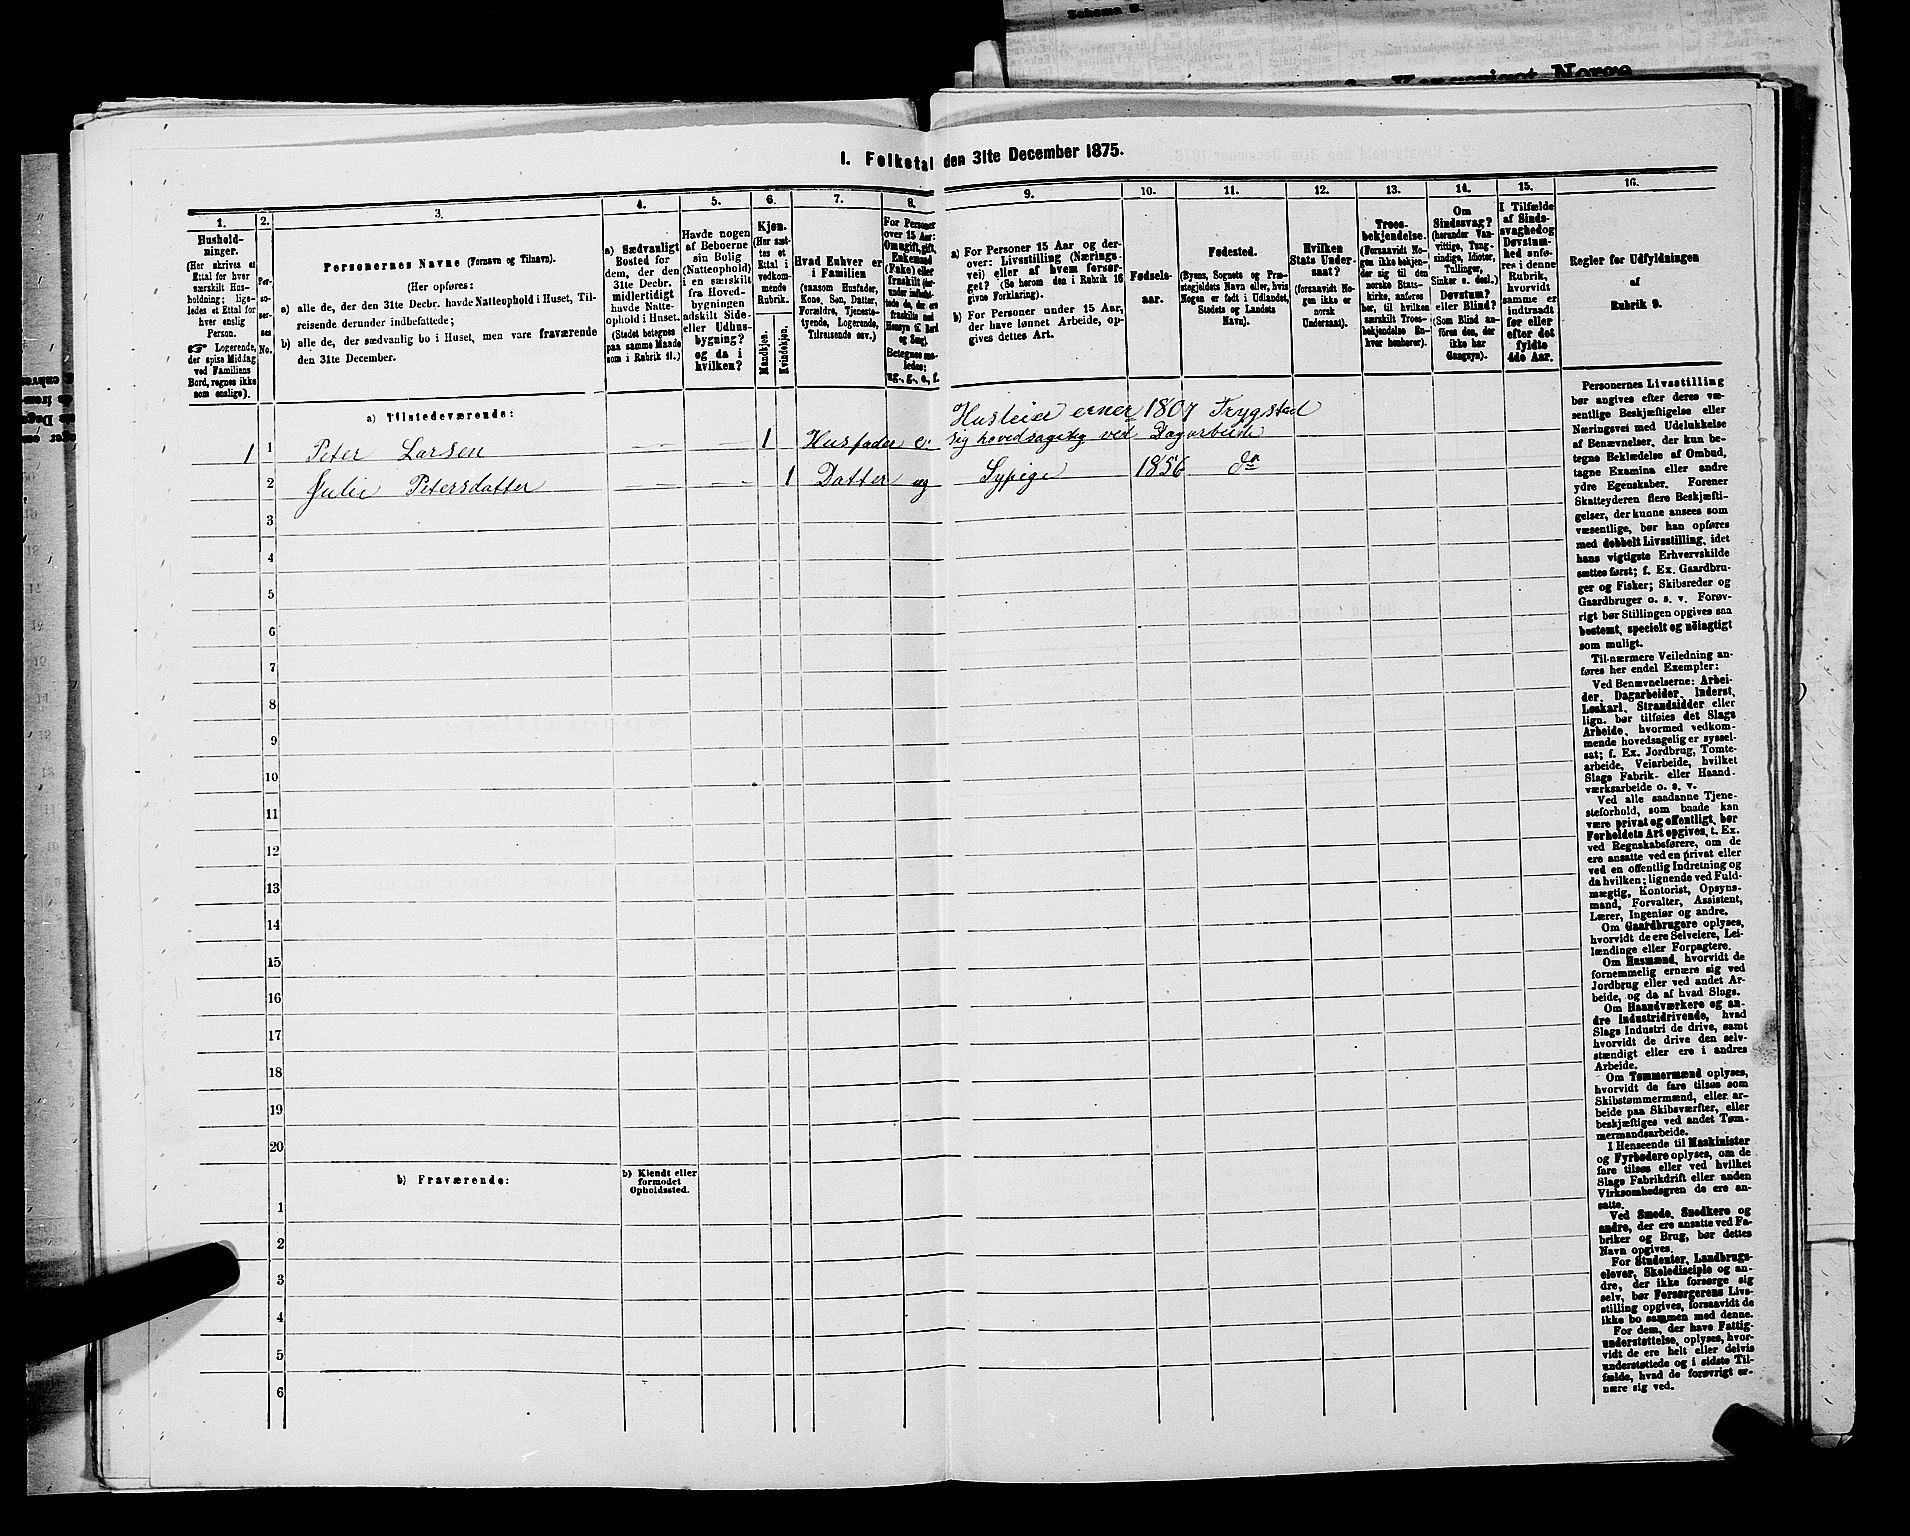 I. Folketal den 31te December 1875.
1.
2.
3.
4.
5.
6.
7.
8.
9.
10.
11.
12.
13.
14.
15.
16.
Hushold-
ninger.
(Her skrives et
Ettal for hver
særskilt Hus-
holdning; lige-
ledes et Ettal for
hver enslig
Person.
☞ Logerende,
der spise Middag
ved Familiens
Bord, regnes ikke
som enslige).
Per-
so-
ner-
nes
No.
Personernes Navne (Fornavn og Tilnavn).
(Her opføres:
a) alle de, der den 31te Decbr. havde Natteophold i Huset, Til-
reisende derunder indbefattede;
b) alle de, der sædvanlig bo i Huset, men vare fraværende
den 31te December.
a) Sædvanligt
Bosted for
dem, der den
31te Decbr.
midlertidigt
havde Natte-
ophold i Huset.
(Stedet betegnes
paa samme Maade
som i Rubrik 11.)
Havde nogen
af Beboerne
sin Bolig
(Natteophold)
i en særskilt
fra Hoved-
bygningen
adskilt Side-
eller Udhus-
bygning?
og da i
hvilken?
Kjøn.
(Her sæt-
tes et
Ettal i
vedkom-
mende
Rubrik.
Mandkjøn.
Kvindekjøn.
Hvad Enhver er
i Familien
(saasom Husfader,
Kone, Søn, Datter,
Forældre, Tjeneste-
tyende, Logerende,
Tilreisende osv.)
For Personer
over 15 Aar:
Om ugift, gift,
Enkemand
(Enke) eller
fraskilt
Betegnes saa-
ledes:
ug., g., e., f.
a) For Personer 15 Aar og der-
over: Livsstilling (Nærings-
vei) eller af hvem forsør-
get? (Se herom den i Rubrik 16
givne Forklaring).
b) For Personer under 15 Aar,
der have lønnet Arbeide, op-
gives dettes Art.
Fødsels-
aar.
Fødested.
(Byens, Sognets og Præ-
stegjeldets Navn eller, hvis
Nogen er født i Udlandet,
Stedets og Landets
Navn).
Hvilken
Stats Under-
saat?
(forsaavidt No-
gen ikke er
norsk
Undersaat).
Troes-
bekjendelse.
(Forsaavidt No-
gen ikke bekjen-
der sig til den
norske Stats-
kirke, anføres
her, til hvilken
særskilt Troes-
bekjendelse En-
hver henhører).
Om
Sindssvag?
(herunder Van-
vittige, Tung-
sindige, Idioter,
Tullinger,
Sinker o. desl.)
Døvstum?
eller Blind?
(Som Blind an-
føres den, der
ikke har
Gangsyn).
I Tilfælde
af Sinds-
svaghed og
Døvstum-
hed anfø-
res i denne
Rubrik,
hvorvidt
samme er
indtraadt
før eller
efter det
fyldte
4de Aar.
Regler for Udfyldningen
af
Rubrik 9.
a) Tilstedeværende:
1 1 Peter Larsen — — 1 Husfader e. Husleier erner sig hovedsagelig ved Dagarbeide 1807 Trygstad
2 Julie Petersdatter — — 1 Datter ug Sypige 1856 do
3
4
5
6
7
8
9
10
11
12
13
14
15
16
17
18
19
20
b) Fraværende:
b) Kjendt eller
formodet
Opholdssted.
1
2
3
4
5
6
Personernes Livsstilling
bør angives efter deres væ-
sentlige Beskjæftigelse eller
Næringsvei med Udelukkelse
af Benævnelser, der kun be-
tegne Beklædelse af Ombud,
tagne Examina eller andre
ydre Egenskaber. Forener
Skatteyderen flere Beskjæfti-
gelser, der kunne ansees som
væsentlige, bør han opføres
med dobbelt Livsstilling, idet
hans vigtigste Erhvervskilde
sættes først; f. Ex. Gaardbru-
ger og Fisker; Skibsreder og
Gaardbruger o. s. v. Forøv-
rigt bør Stillingen opgives saa
bestemt, specielt og nøiagtigt
som muligt.
Til nærmere Veiledning an-
føres her endel Exempler:
Ved Benævnelserne: Arbei-
der, Dagarbeider, Inderst,
Løskarl, Strandsidder eller
lign. bør tilføies det Slags
Arbeide, hvormed vedkom-
mende hovedsagelig er syssel-
sat; f. Ex. Jordbrug, Tomte-
arbeide, Veiarbeide, hvilket
Slags Fabrik- eller Haand-
værksarbeide o. s. v.
Ved alle saadanne Tjene-
steforhold, som baade kan
være privat og offentligt, bør
Forholdets Art opgives, t. Ex.
ved Regnskabsførere, om de
ere ansatte ved en privat eller
ved en offentlig Indretning og
da hvilken; lignende ved Fuld-
mægtig, Kontorist, Opsyns-
mand, Forvalter, Assistent,
Lærer, Ingeniør og andre.
Om Gaardbrugere oplyses,
hvorvidt de ere Selveiere, Lei-
lændinge eller Forpagtere.
Om Husmænd, hvorvidt de
fornemmelig ernære sig ved
Jordbrug eller ved andet Ar-
beide, og da af hvad Slags.
Om Haandværkere og an-
dre Industridrivende, hvad
Slags Industri de drive, samt
hvorvidt de drive den selv-
stændigt eller ere i andres
Arbeide.
Om Tømmermænd oplyses,
hvorvidt de fare tilsøs som
Skibstømmermænd, eller ar-
beide paa Skibsværfter, eller
beskjæftiges ved andet Tøm-
mermandsarbeide.
I Henseende til Maskinister
og Fyrbødere oplyses, om de
fare tilsøs eller ved hvilket
Slags Fabrikdrift eller anden
Virksomhedsgren de ere an-
satte.
Ved Smede, Snedkere og
andre, der ere ansatte ved Fa-
briker og Brug, bør dettes
Navn opgives.
For Studenter, Landbrugs-
elever, Skoledisciple og an-
dre, der ikke forsørge sig
selv, bør Forsørgerens Livs-
stilling opgives, forsaavidt de
ikke bo sammen med denne.
For dem, der have Fattig-
understøttelse, oplyses, hvor-
vidt de ere helt eller delvis
understøttede og i sidste Til-
fælde, hvad de forøvrigt er-
nære sig ved.